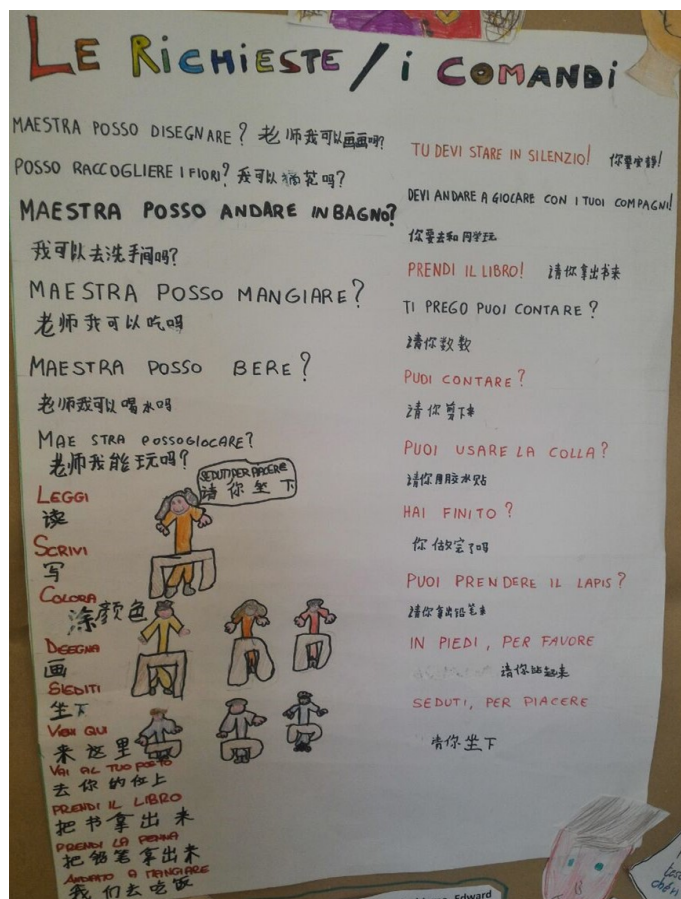 LE RICHIESTE / i COMANDI
MAESTRA POSSO DISEGNARE? 老师我可以画画吗?
POSSO RACCOGLIERE I FIORI? 我可以摘花吗?
MAESTRA POSSO ANDARE IN BAGNO?
我可以去洗手间吗?
MAESTRA POSSO MANGIARE?
老师我可以吃吗
MAESTRA POSSO BERE?
老师我可以喝水吗
MAESTRA POSSO GIOCARE?
老师我能玩吗?
SEDUTI PER PIACERE
请你坐下
LEGGI
读
SCRIVI
写
COLORA
涂颜色
DISEGNA
画
SIEDITI
坐下
VIENI QUI
来这里
VAI AL TUO POSTO
去你的位上
PRENDI IL LIBRO
把书拿出来
PRENDI LA PENNA
把铅笔拿出来
ANDIAMO A MANGIARE
我们去吃饭
TU DEVI STARE IN SILENZIO! 你要安静!
DEVI ANDARE A GIOCARE CON I TUOI COMPAGNI!
你要去和同学玩
PRENDI IL LIBRO! 请你拿出书来
TI PREGO PUOI CONTARE?
请你数数
PUOI CONTARE?
请你剪下来
PUOI USARE LA COLLA?
请你用胶水贴
HAI FINITO?
你做完了吗
PUOI PRENDERE IL LAPIS?
请你拿出铅笔来
IN PIEDI, PER FAVORE
请你站起来
SEDUTI, PER PIACERE
请你坐下
Edward